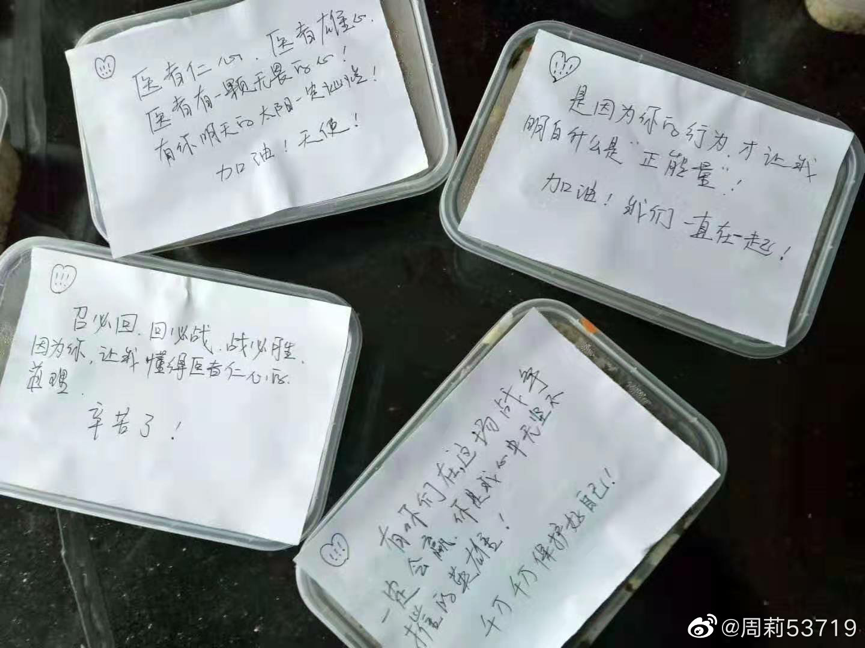 医者仁心，医者有雄心，
医者有一颗无畏的心！
有你明天的太阳一定
加油！天使！
是因为你的行为，才让我
明白什么是“正能量”！
加油！我们一直在一起！
召必回，回必战，战必胜，
因为你，让我懂得医者仁心的
真理，
辛苦了！
有你们在，这场战争
一定会赢，你是我心中无坚不
摧的英雄！
千万千万保护好自己！
@周莉53719